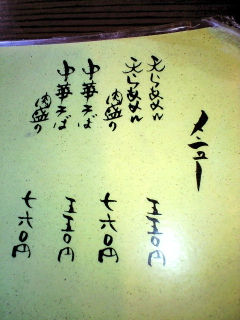 メニュー
天らあめん 五五〇円
天らあめん
肉盛り 七六〇円
中華そば 五五〇円
中華そば
肉盛り 七六〇円